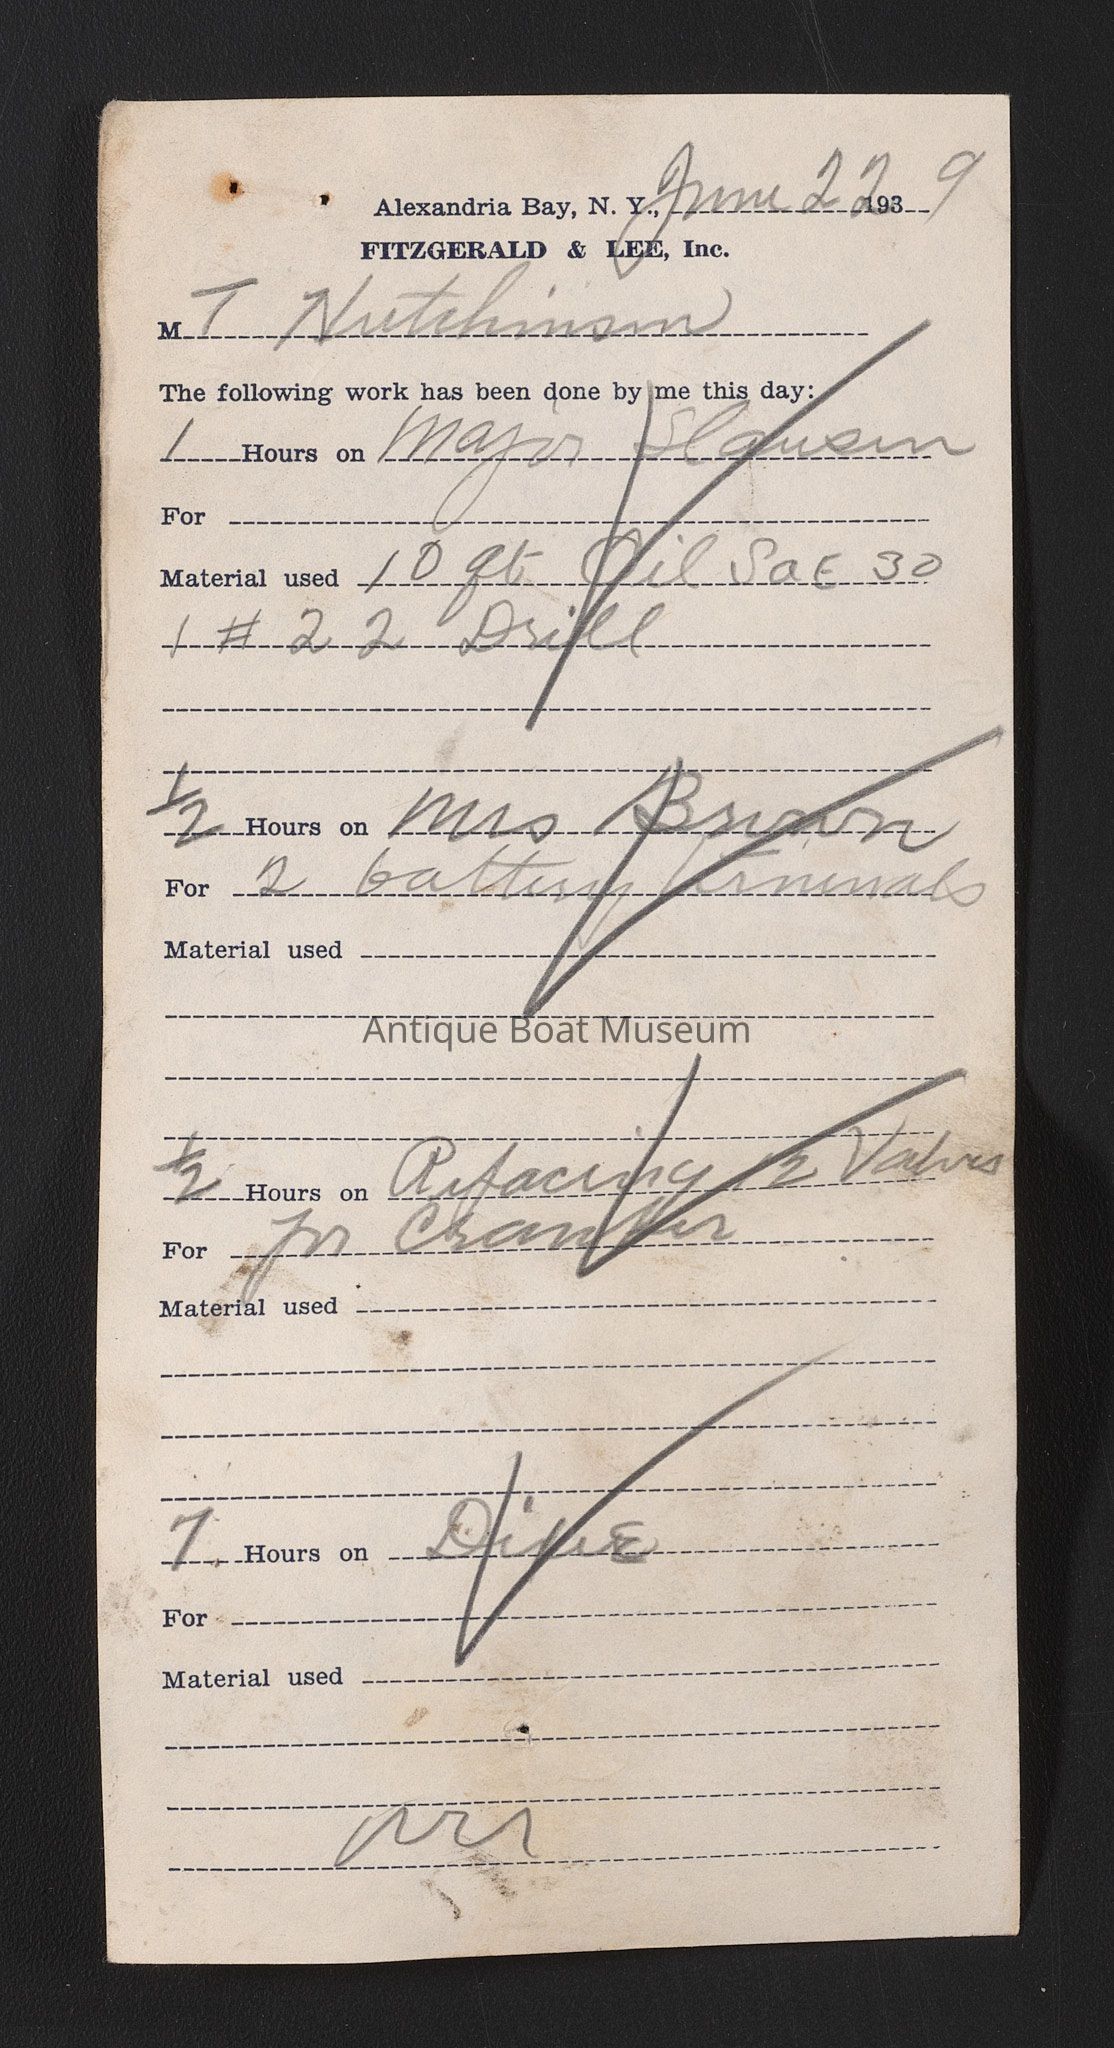 Alexandria Bay, N. Y., June 22 1939
FITZGERALD & LEE, Inc.
M T Hutchinson
The following work has been done by me this day:
1 Hours on Major Slauson
For
Material used 10 qt Oil SaE 30
1 # 22 Drill
1/2 Hours on Mrs Brown
For 2 battery terminals
Material used
Antique Boat Museum
1/2 Hours on Refacing 12 Valves
For for
Material used
7 Hours on
For
Material used